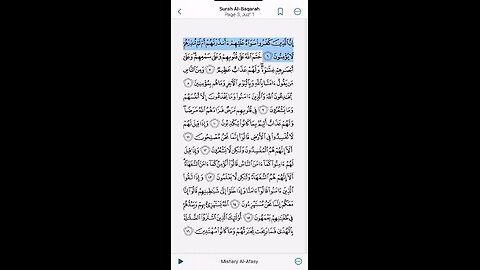 Surah Al-Baqarah
Page 3, Juz' 1
إِنَّ ٱلَّذِينَ كَفَرُوا۟ سَوَآءٌ عَلَيْهِمْ ءَأَنذَرْتَهُمْ أَمْ لَمْ تُنذِرْهُمْ
لَا يُؤْمِنُونَ ٦ خَتَمَ ٱللَّهُ عَلَىٰ قُلُوبِهِمْ وَعَلَىٰ سَمْعِهِمْ وَعَلَىٰٓ
أَبْصَٰرِهِمْ غِشَٰوَةٌ وَلَهُمْ عَذَابٌ عَظِيمٌ ٧ وَمِنَ ٱلنَّاسِ
مَن يَقُولُ ءَامَنَّا بِٱللَّهِ وَبِٱلْيَوْمِ ٱلْـَٔاخِرِ وَمَا هُم بِمُؤْمِنِينَ ٨
يُخَٰدِعُونَ ٱللَّهَ وَٱلَّذِينَ ءَامَنُوا۟ وَمَا يَخْدَعُونَ إِلَّآ أَنفُسَهُمْ
وَمَا يَشْعُرُونَ ٩ فِى قُلُوبِهِم مَّرَضٌ فَزَادَهُمُ ٱللَّهُ مَرَضًا
وَلَهُمْ عَذَابٌ أَلِيمٌۢ بِمَا كَانُوا۟ يَكْذِبُونَ ١٠ وَإِذَا قِيلَ لَهُمْ
لَا تُفْسِدُوا۟ فِى ٱلْأَرْضِ قَالُوٓا۟ إِنَّمَا نَحْنُ مُصْلِحُونَ ١١
أَلَآ إِنَّهُمْ هُمُ ٱلْمُفْسِدُونَ وَلَٰكِن لَّا يَشْعُرُونَ ١٢ وَإِذَا قِيلَ
لَهُمْ ءَامِنُوا۟ كَمَآ ءَامَنَ ٱلنَّاسُ قَالُوٓا۟ أَنُؤْمِنُ كَمَآ ءَامَنَ ٱلسُّفَهَآءُ
أَلَآ إِنَّهُمْ هُمُ ٱلسُّفَهَآءُ وَلَٰكِن لَّا يَعْلَمُونَ ١٣ وَإِذَا لَقُوا۟
ٱلَّذِينَ ءَامَنُوا۟ قَالُوٓا۟ ءَامَنَّا وَإِذَا خَلَوْا۟ إِلَىٰ شَيَٰطِينِهِمْ قَالُوٓا۟ إِنَّا
مَعَكُمْ إِنَّمَا نَحْنُ مُسْتَهْزِءُونَ ١٤ ٱللَّهُ يَسْتَهْزِئُ بِهِمْ وَيَمُدُّهُمْ
فِى طُغْيَٰنِهِمْ يَعْمَهُونَ ١٥ أُو۟لَٰٓئِكَ ٱلَّذِينَ ٱشْتَرَوُا۟ ٱلضَّلَٰلَةَ
بِٱلْهُدَىٰ فَمَا رَبِحَت تِّجَٰرَتُهُمْ وَمَا كَانُوا۟ مُهْتَدِينَ ١٦
Mishary Al-Afasy